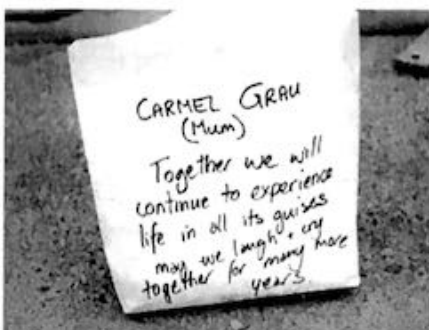 CARMEL GRAU
(Mum)
Together we will
continue to experience
life in all its guises
may we laugh + cry
together for many more
years.